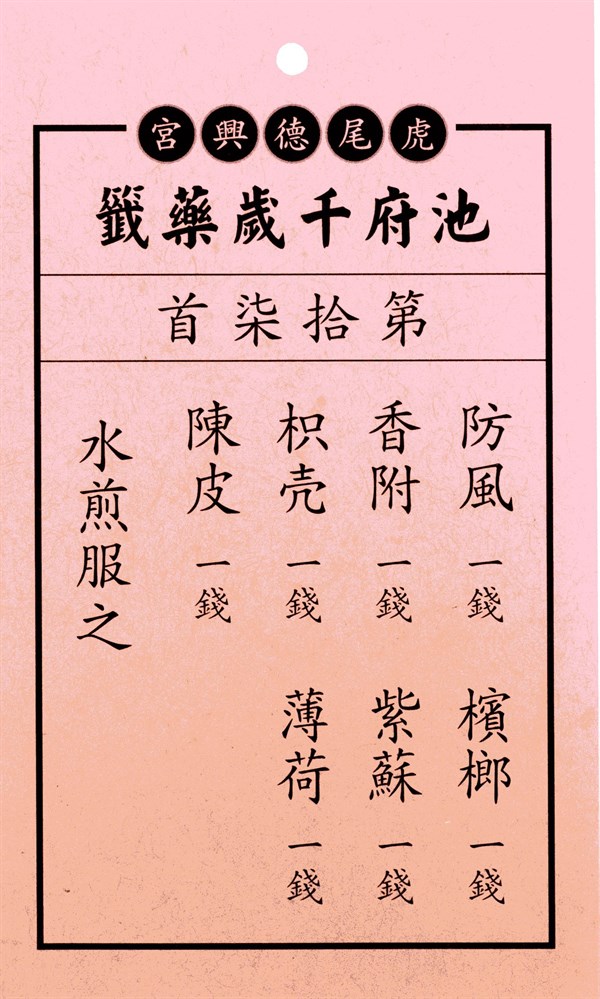 虎尾德興宮
池府千歲藥籤
第拾柒首
防風 一錢 檳榔 一錢
香附 一錢 紫蘇 一錢
枳壳 一錢 薄荷 一錢
陳皮 一錢
水煎服之